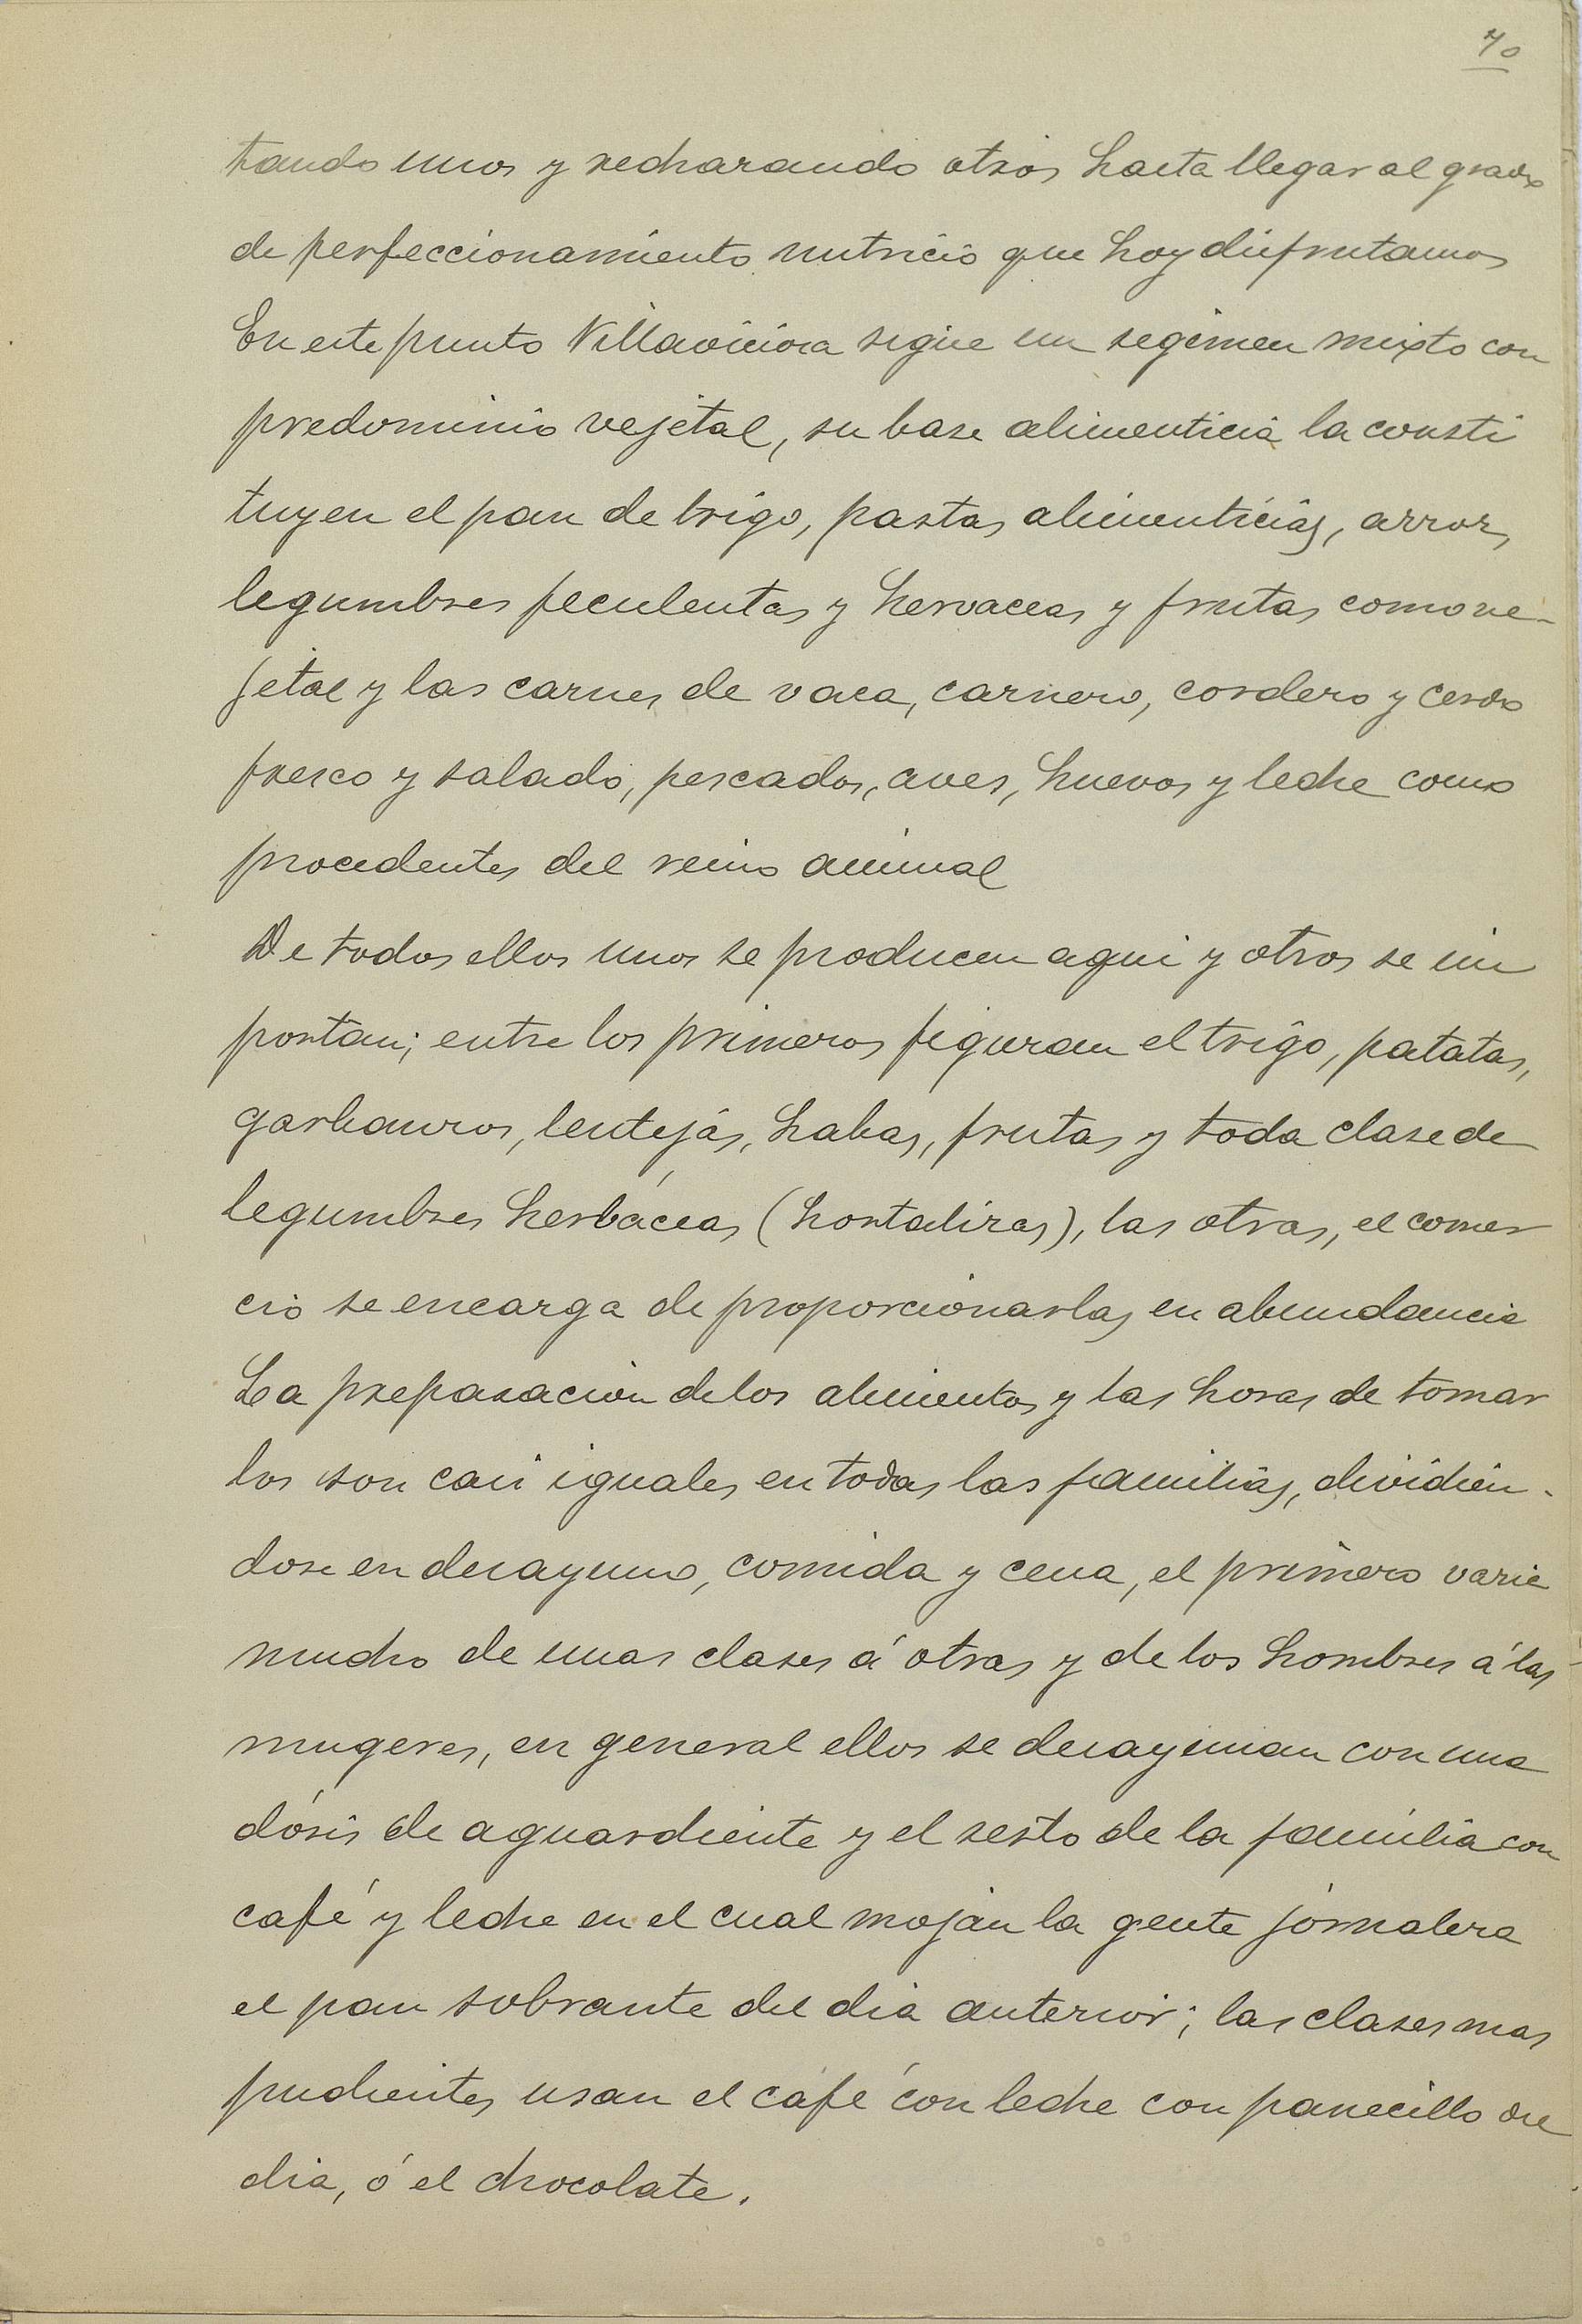 70
tando unos y recharando otros hasta llegar al grado
de perfeccionamiento nutricio que hoy disfrutamos
En este punto Villaviciosa sigue un regimen mixto con
predominio vejetal, su base alimenticia la consti
tuyen el pan de trigo, pastas alimenticias, arroz,
legumbres feculentas y hervaceas y frutas como ve-
jetal y las carnes de vaca, carnero, cordero y cerdo
fresco y salado, pescados, aves, huevos y leche como
procedentes del reino animal
De todos ellos unos se producen aqui y otros se im
portan; entre los primeros figuran el trigo, patatas,
garbanzos, lentejas, habas, frutas y toda clase de
legumbres herbáceas (hortalizas), las otras, el comer
cio se encarga de proporcionarlas en abundancia
La preparacion de los alimentos y las horas de tomar
los son casi iguales en todas las familias, dividien-
dose en desayuno, comida y cena, el primero varia
mucho de unas clases á otras y de los hombres á las
mugeres, en general ellos se desayunan con una
dósis de aguardiente y el resto de la familia con
café y leche en el cual mojan la gente jornalera
el pan sobrante del dia anterior; las clases mas
pudientes usan el café con leche con panecillo del
dia, ó el chocolate.